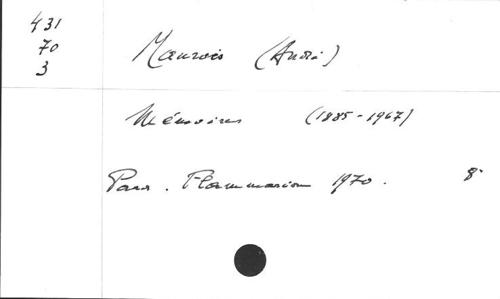 431
70
3
Maurois (André)
Mémoires (1885-1967)
Paris. Flammarion 1970. 8°